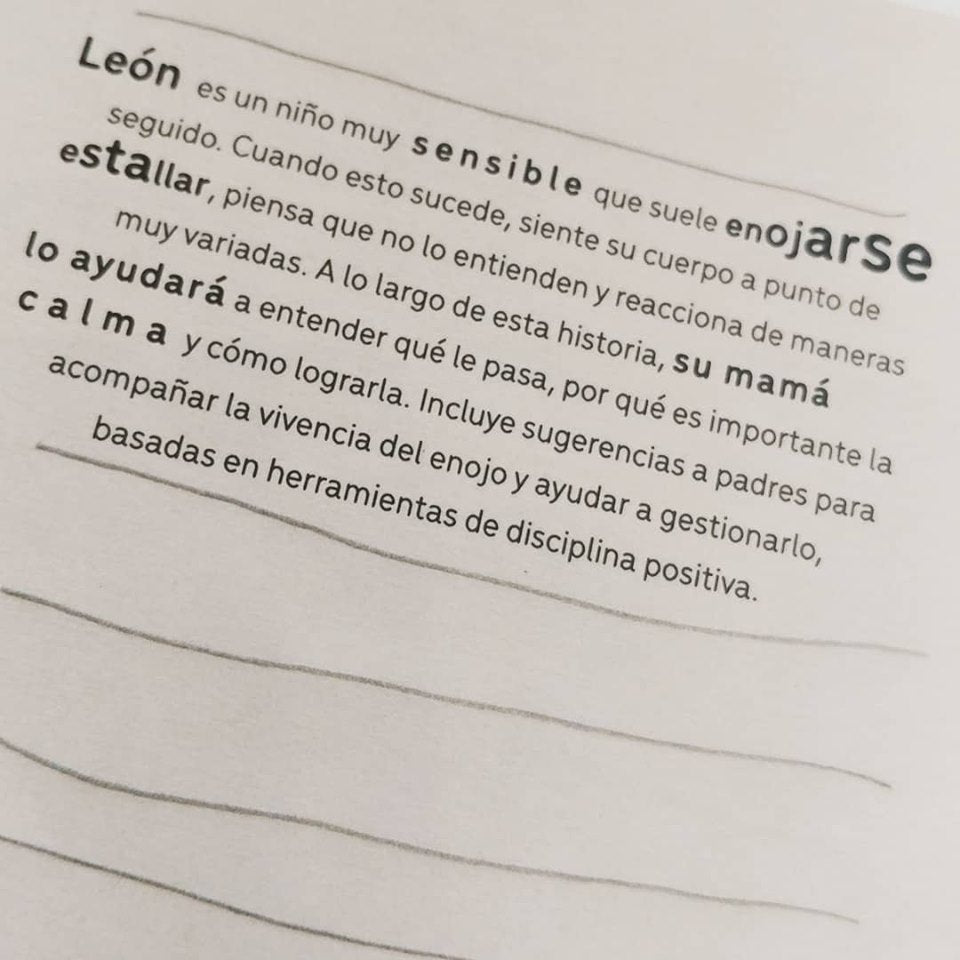 León es un niño muy sensible que suele enojarse
seguido. Cuando esto sucede, siente su cuerpo a punto de
estallar, piensa que no lo entienden y reacciona de maneras
muy variadas. A lo largo de esta historia, su mamá
lo ayudará a entender qué le pasa, por qué es importante la
calma y cómo lograrla. Incluye sugerencias a padres para
acompañar la vivencia del enojo y ayudar a gestionarlo,
basadas en herramientas de disciplina positiva.